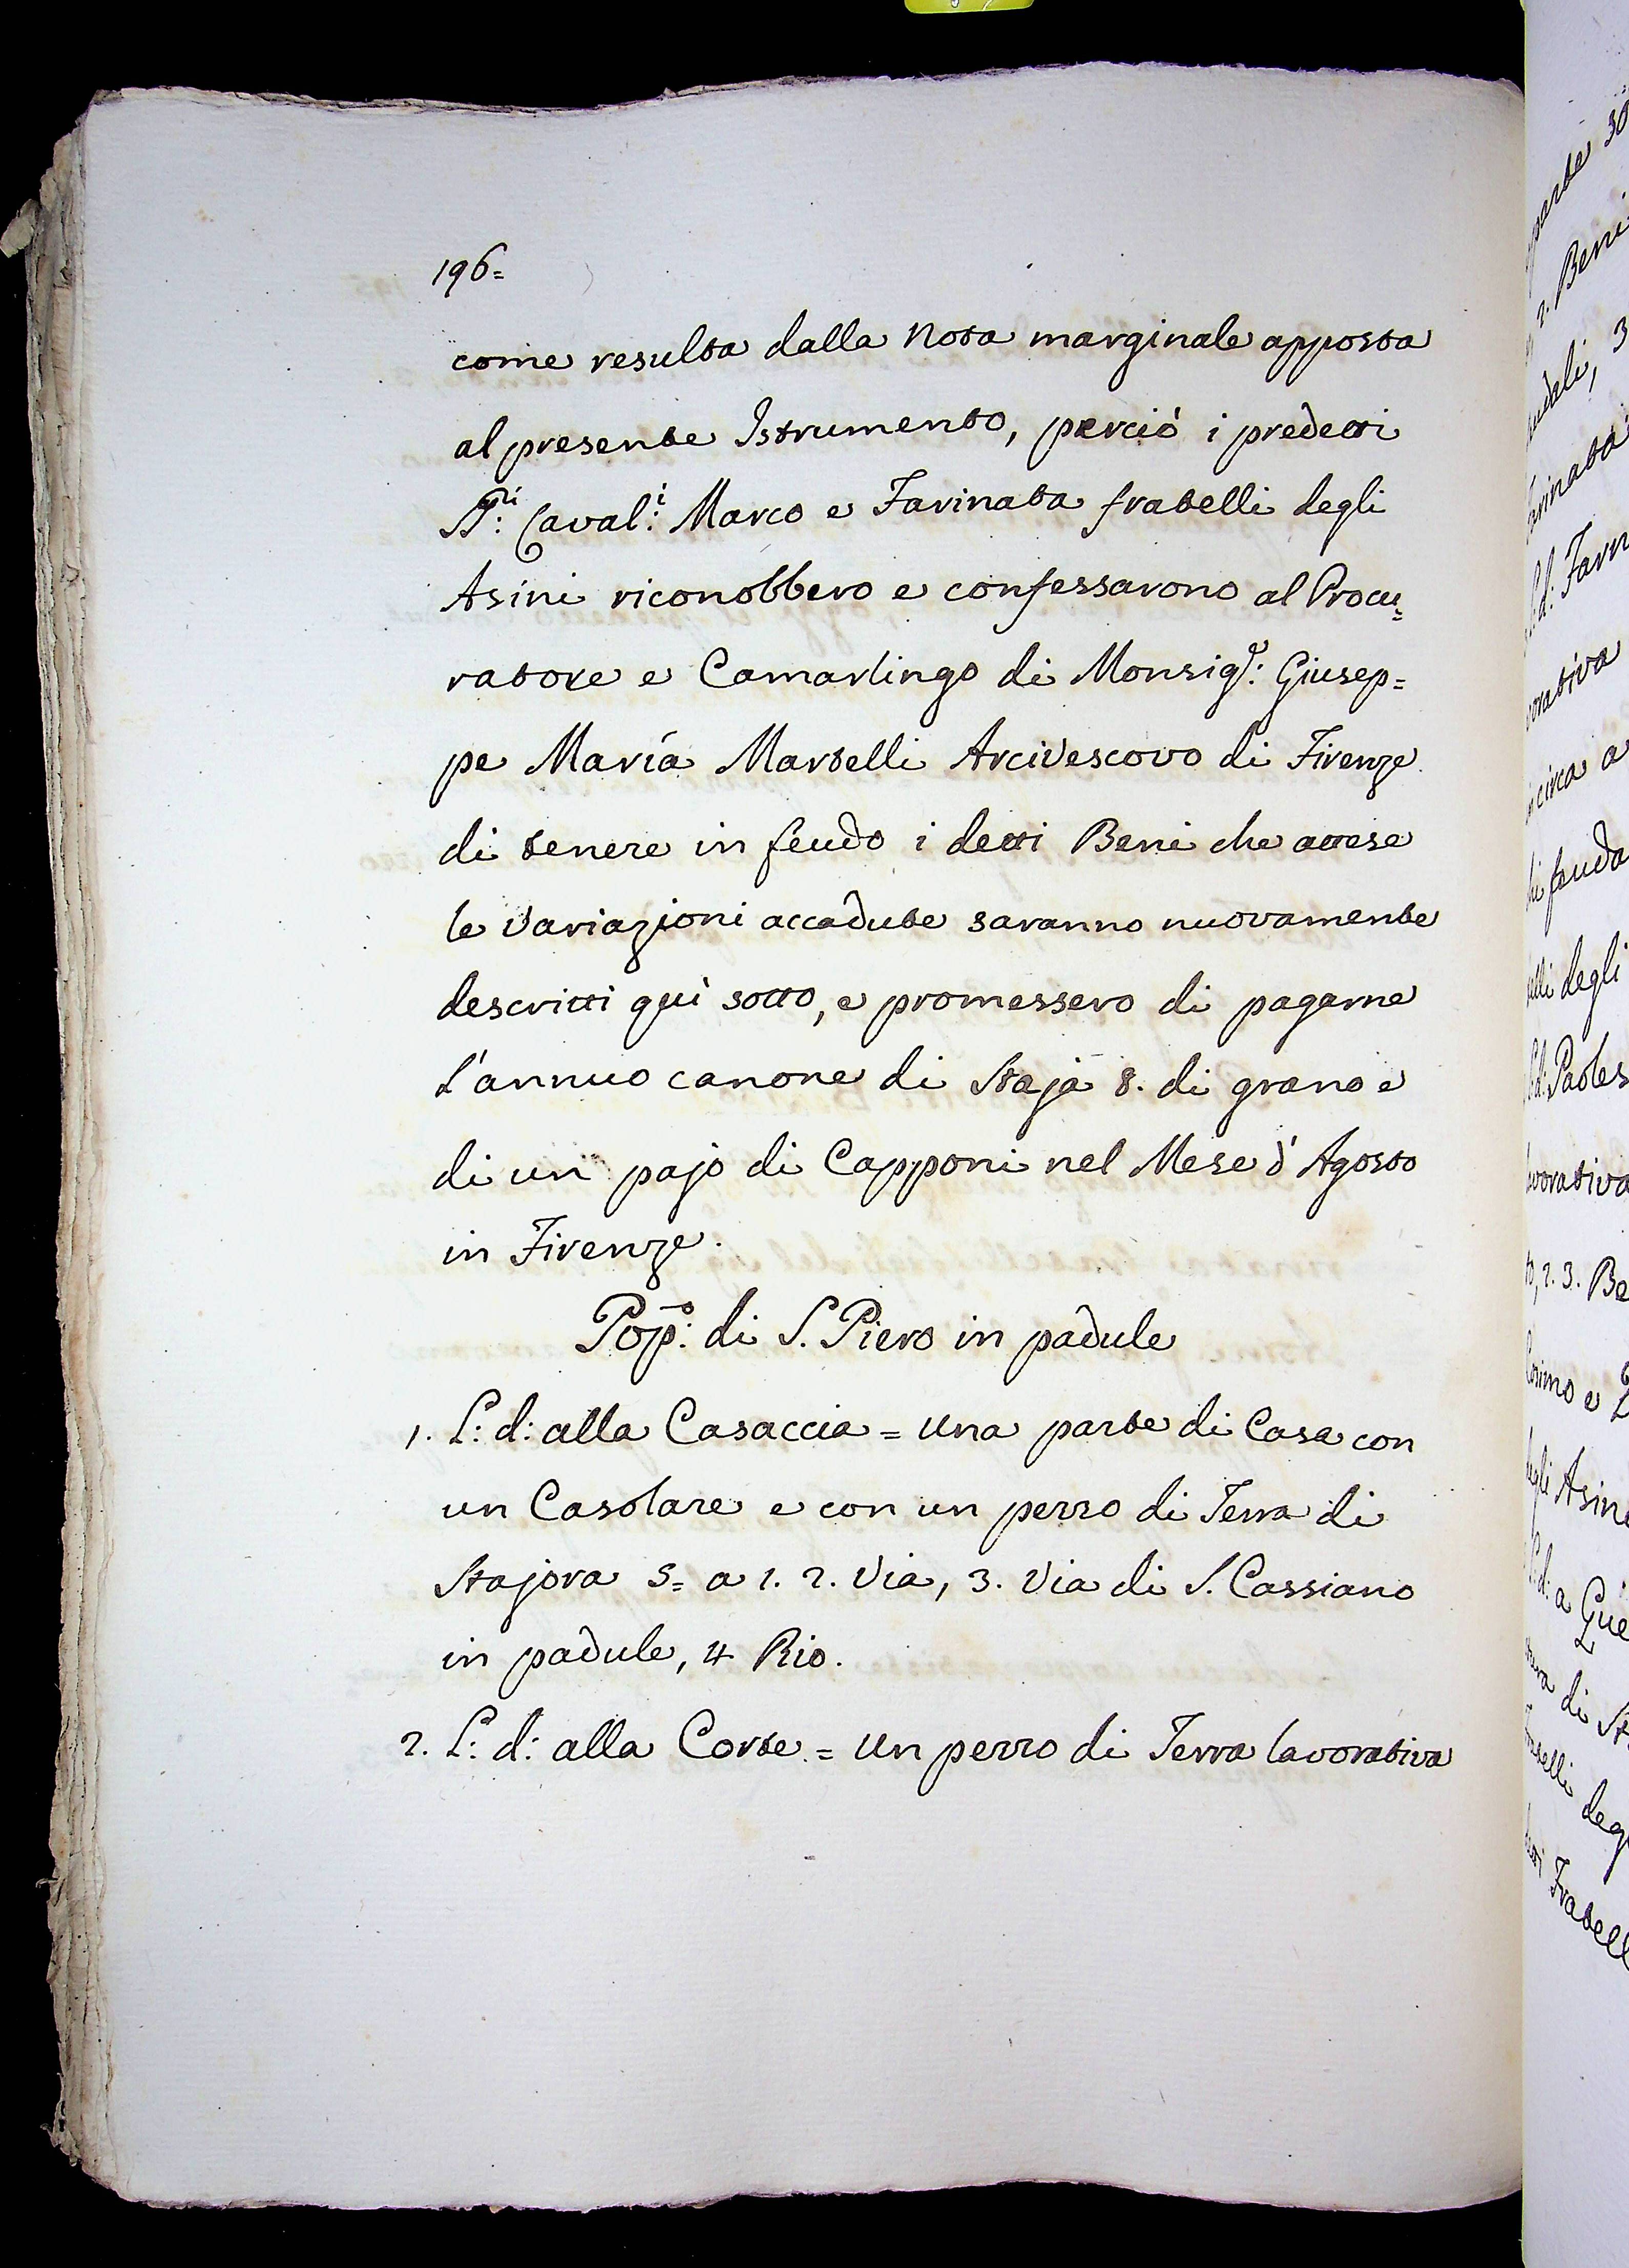 196=
come resulta dalla Nota marginale apposta
al presente Istrumento, perciò i predetti
SS:ri Caval:i Marco e Farinata fratelli degli
Asini riconobbero e confessarono al Procu=
ratore e Camarlingo di Monsig:r Giusep=
pe María Martelli Arcivescovo di Firenze
di tenere in feudo i detti Beni che attese
le variazioni accadute saranno nuovamente
descritti quì sotto, e promessero di pagarne
l'annuo canone di Staja 8. di grano e
di un pajo di Capponi nel Mese d'Agosto
in Firenze.
Pop:o di S. Piero in padule
1. L: d: alla Casaccia = una parte di Casa con
un Casolare e con un pezzo di Terra di
Stajora 5= a 1. 2. Via, 3. Via di S. Cassiano
in padule, 4 Rio.
2. L: d: alla Corte = un pezzo di Terra lavorativa
parte 30
2. Beni
3
arinata
L:d: Farn
orativa
circa a
di feuda
elli degli
L:d: Paoles
avorativa
2. 3. Be
Cosimo e
degli Asini
L:d: a Gue
di St
ratelli deg
Fratell